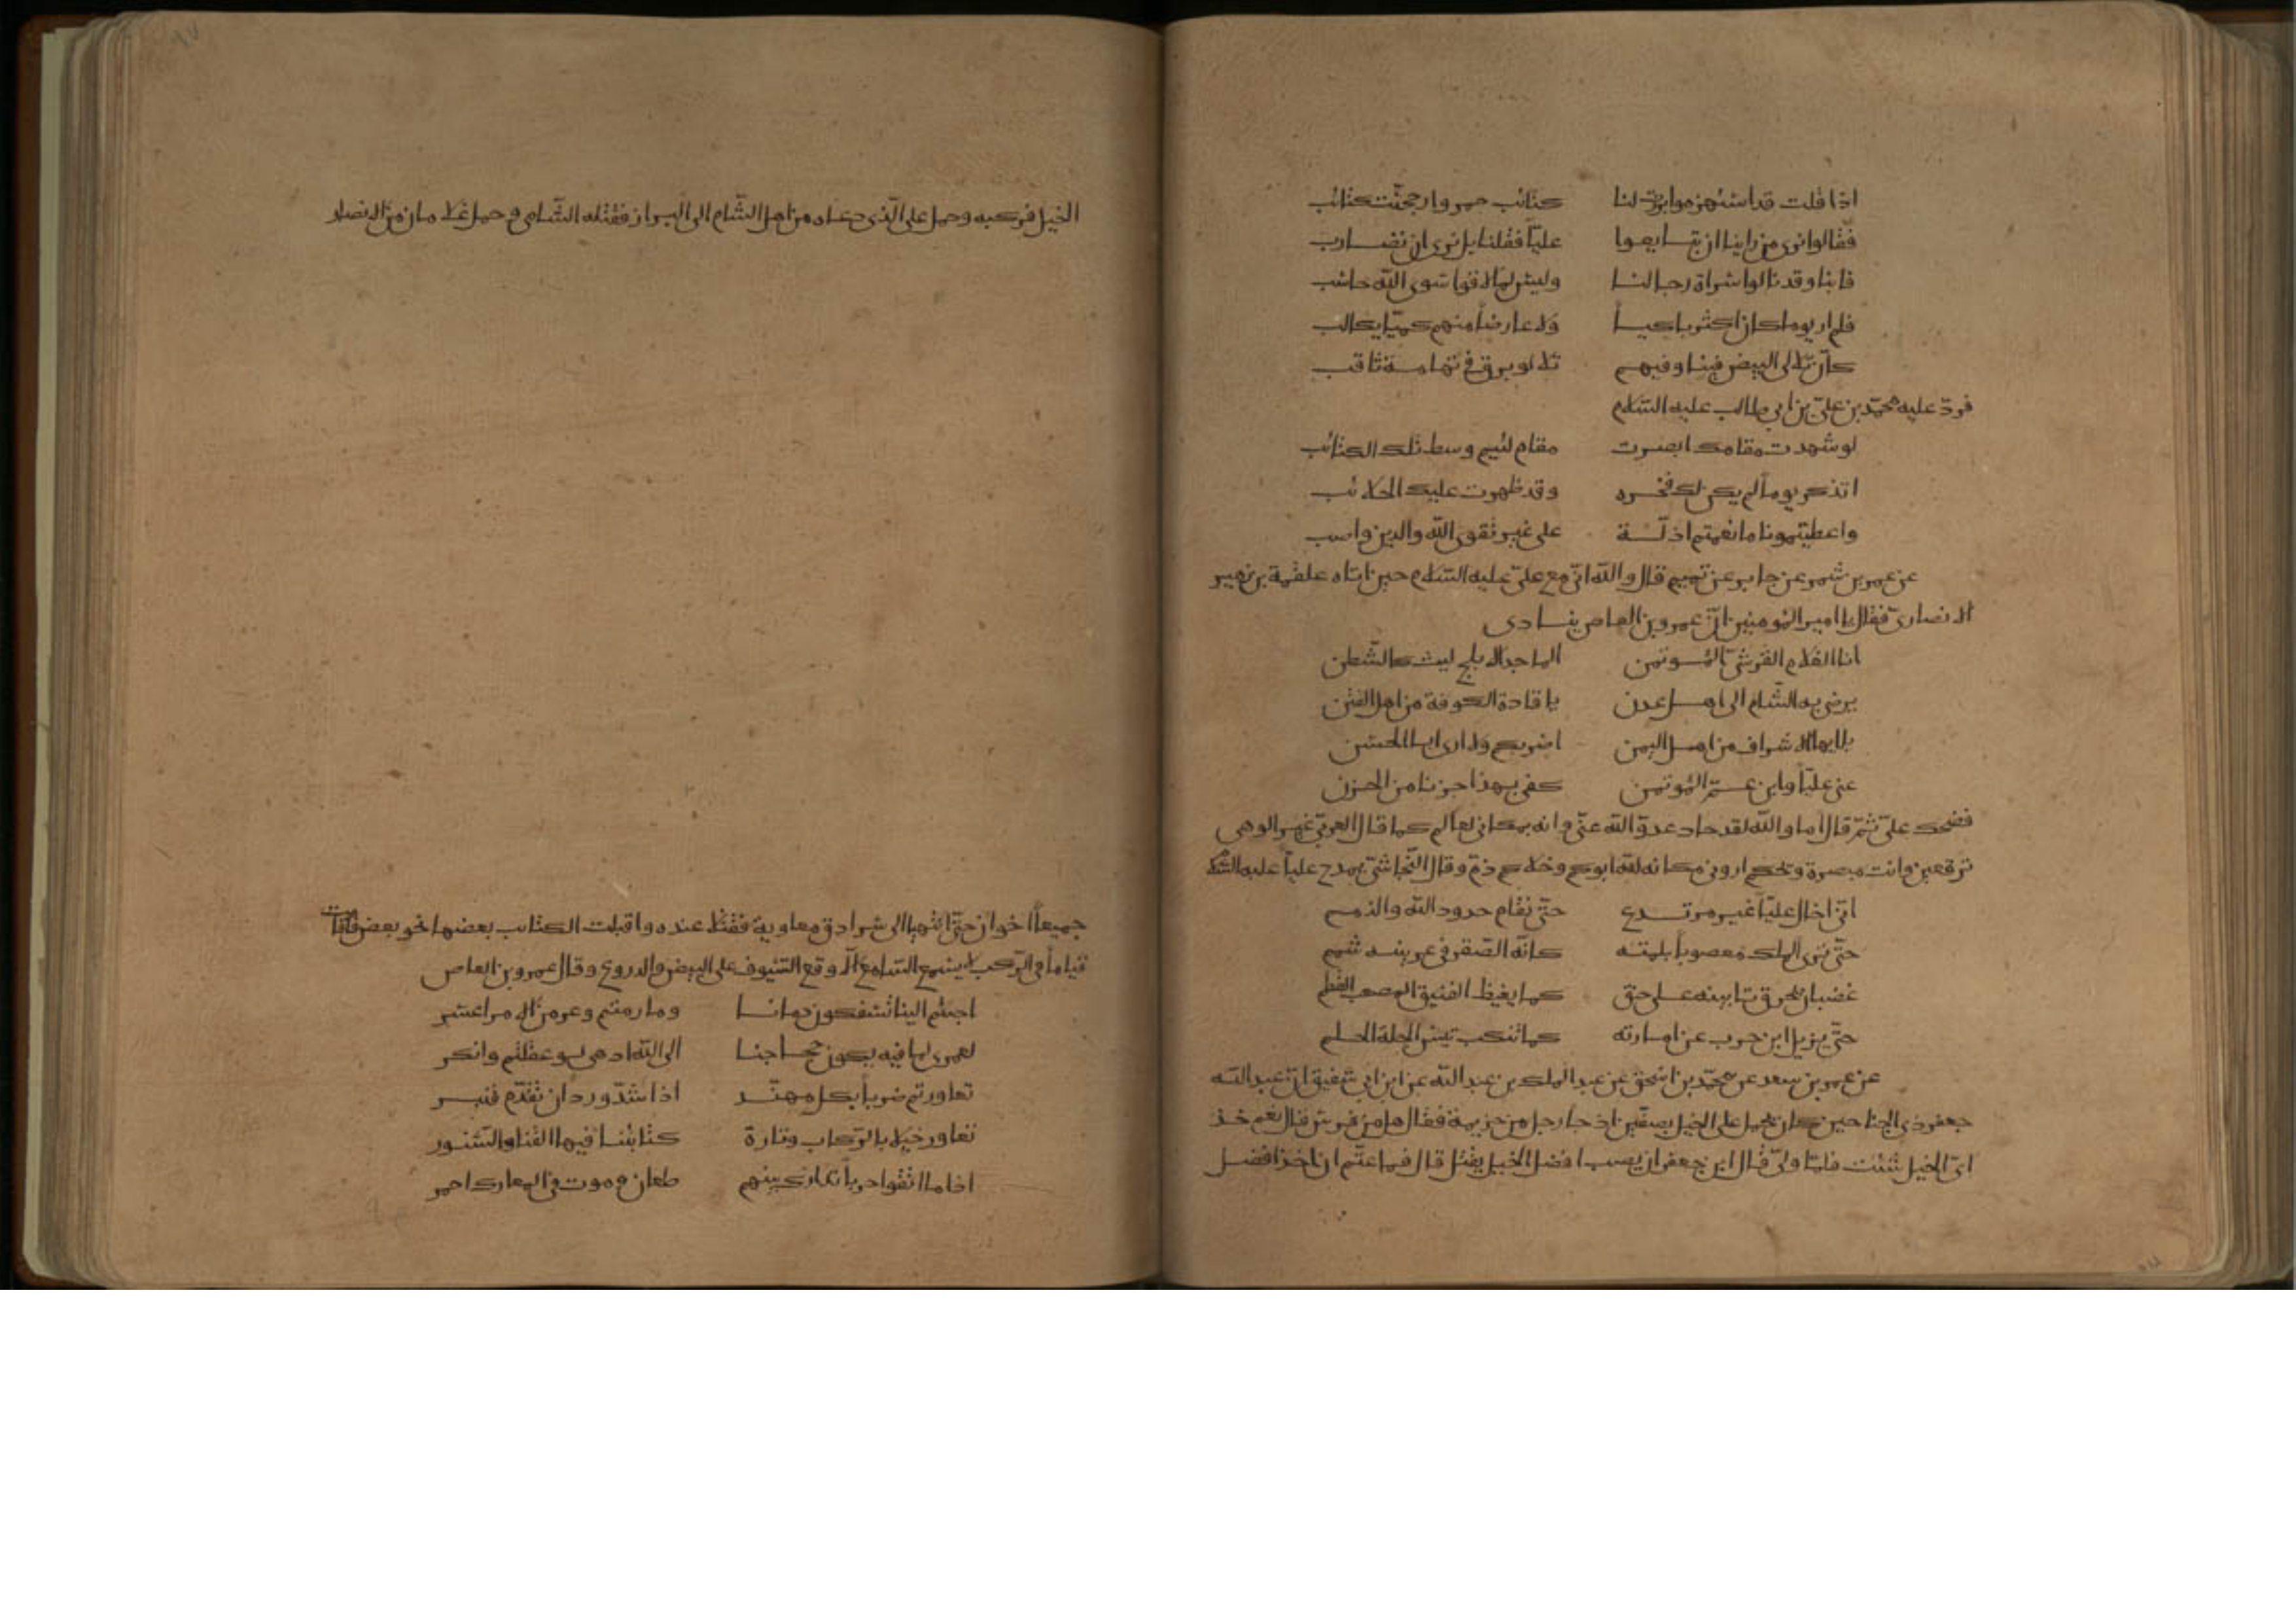 اذا قلت قد استهزموا برزت لنا كتائب حمر وارجحنت كتائب
فقالوا نرى من راينا ان تبايعوا عليّاً فقلنا بل نرى ان نضارب
فابنا وقد نالوا سراة رجالنا وليس لما لاقوا سوى الله حاسب
فلم ار يوما كان اكثر باكياً ولا عارضاً منهم كميّاً يكالب
كانّ تلالى البيض فينا وفيهم تلالو برق في تهامة ثاقب
فردّ عليه محمّد بن علىّ بن ابى طالب عليه السّلام
لو شهدت مقامك ابصرت مقام لئيم وسط تلك الكتائب
اتذكر يوماً لم يكن لك فخره وقد ظهرت عليك الجلائب
واعطيتمونا ما نقمتم اذلّة على غير تقوى الله والدين واصب
عن عمر بن شمر عن جابر عن تميم قال والله انّى مع علىّ عليه السّلام حين اتاه علقمة بن زهير
الانصارىّ فقال يا امير المؤمنين انّ عمرو بن العاص ينادى
انا الغلام القرشىّ المؤتمن الماجد الابلج ليث كالشّطن
يرضى به الشّام الى اهل عدن يا قادة الكوفة من اهل الفتن
يا ايها الاشراف من اهل اليمن اضربكم ولا ارى ابا الحسن
عنى عليّاً وابن عمّ المؤتمن كفى بهذا حزنا من الحزن
فضحك علىّ ثمّ قال اما والله لقد حاد عدوّ الله عنّى وانه بمكانى لعالم كما قال العربىّ غير الوهى
ترقعين وانت مبصرة ويحكم ارونى مكانه لله ابوكم وخلاكم ذمّ وقال النّجاشىّ يمدح عليّاً عليه السّلام
انّى اخال عليّاً غير مرتدع حتّى تقام حدود الله والذمم
حتّى ترى الملك معصوباً بلمته كانّه الصّقر فى عرنينه شمم
غضبان يحرق نابيه على حنق كما يغيظ الفنيق المصعب القطم
حتّى يزيل ابن حرب عن امارته كما تنكب تيس الحلة الحلم
عن عمر بن سعد عن محمّد بن اسحق عن عبد الملك بن عبد الله عن ابن ابى شقيق انّ عبد الله
جعفر ذى الجناحين كان يحمل على الخيل بصفّين اذ جا رجل من خزيمة فقال هل من فرس قال نعم خذ
اىّ الخيل شئت فلمّا ولىّ قال ابن جعفر ان يصب افضل الخيل يقتل قال فما عتّم ان اخذ افضل
الخيل فركبه وحمل على الّذى دعاه من اهل الشّام الى البراز فقتله الشّامى وحمل غلامان من الانصار
جميعاً اخوان حتّى انتهيا الى سرادق معاوية فقتلا عنده واقبلت الكتائب بعضها نحو بعض فاقتتلت
قياماً فى الرّكب لا يسمع السّامع الّا وقع السّيوف على البيض والدروع وقال عمرو بن العاص
اجئتم الينا تسفكون دمانا وما رمتم وعر من الامر اعسر
لعمرى لما فيه يكون حجاجنا الى الله ادهى لو عقلتم وانكر
تعاورتم ضرباً بكل مهنّد اذا شدّ وردان تقدّم قنبر
تعاور خيلا بالرّكاب وتارة كتائبنا فيها القنا والسّنور
اذا ما التقوا حرباً تدارك بينهم طعان وموت فى المعارك احمر